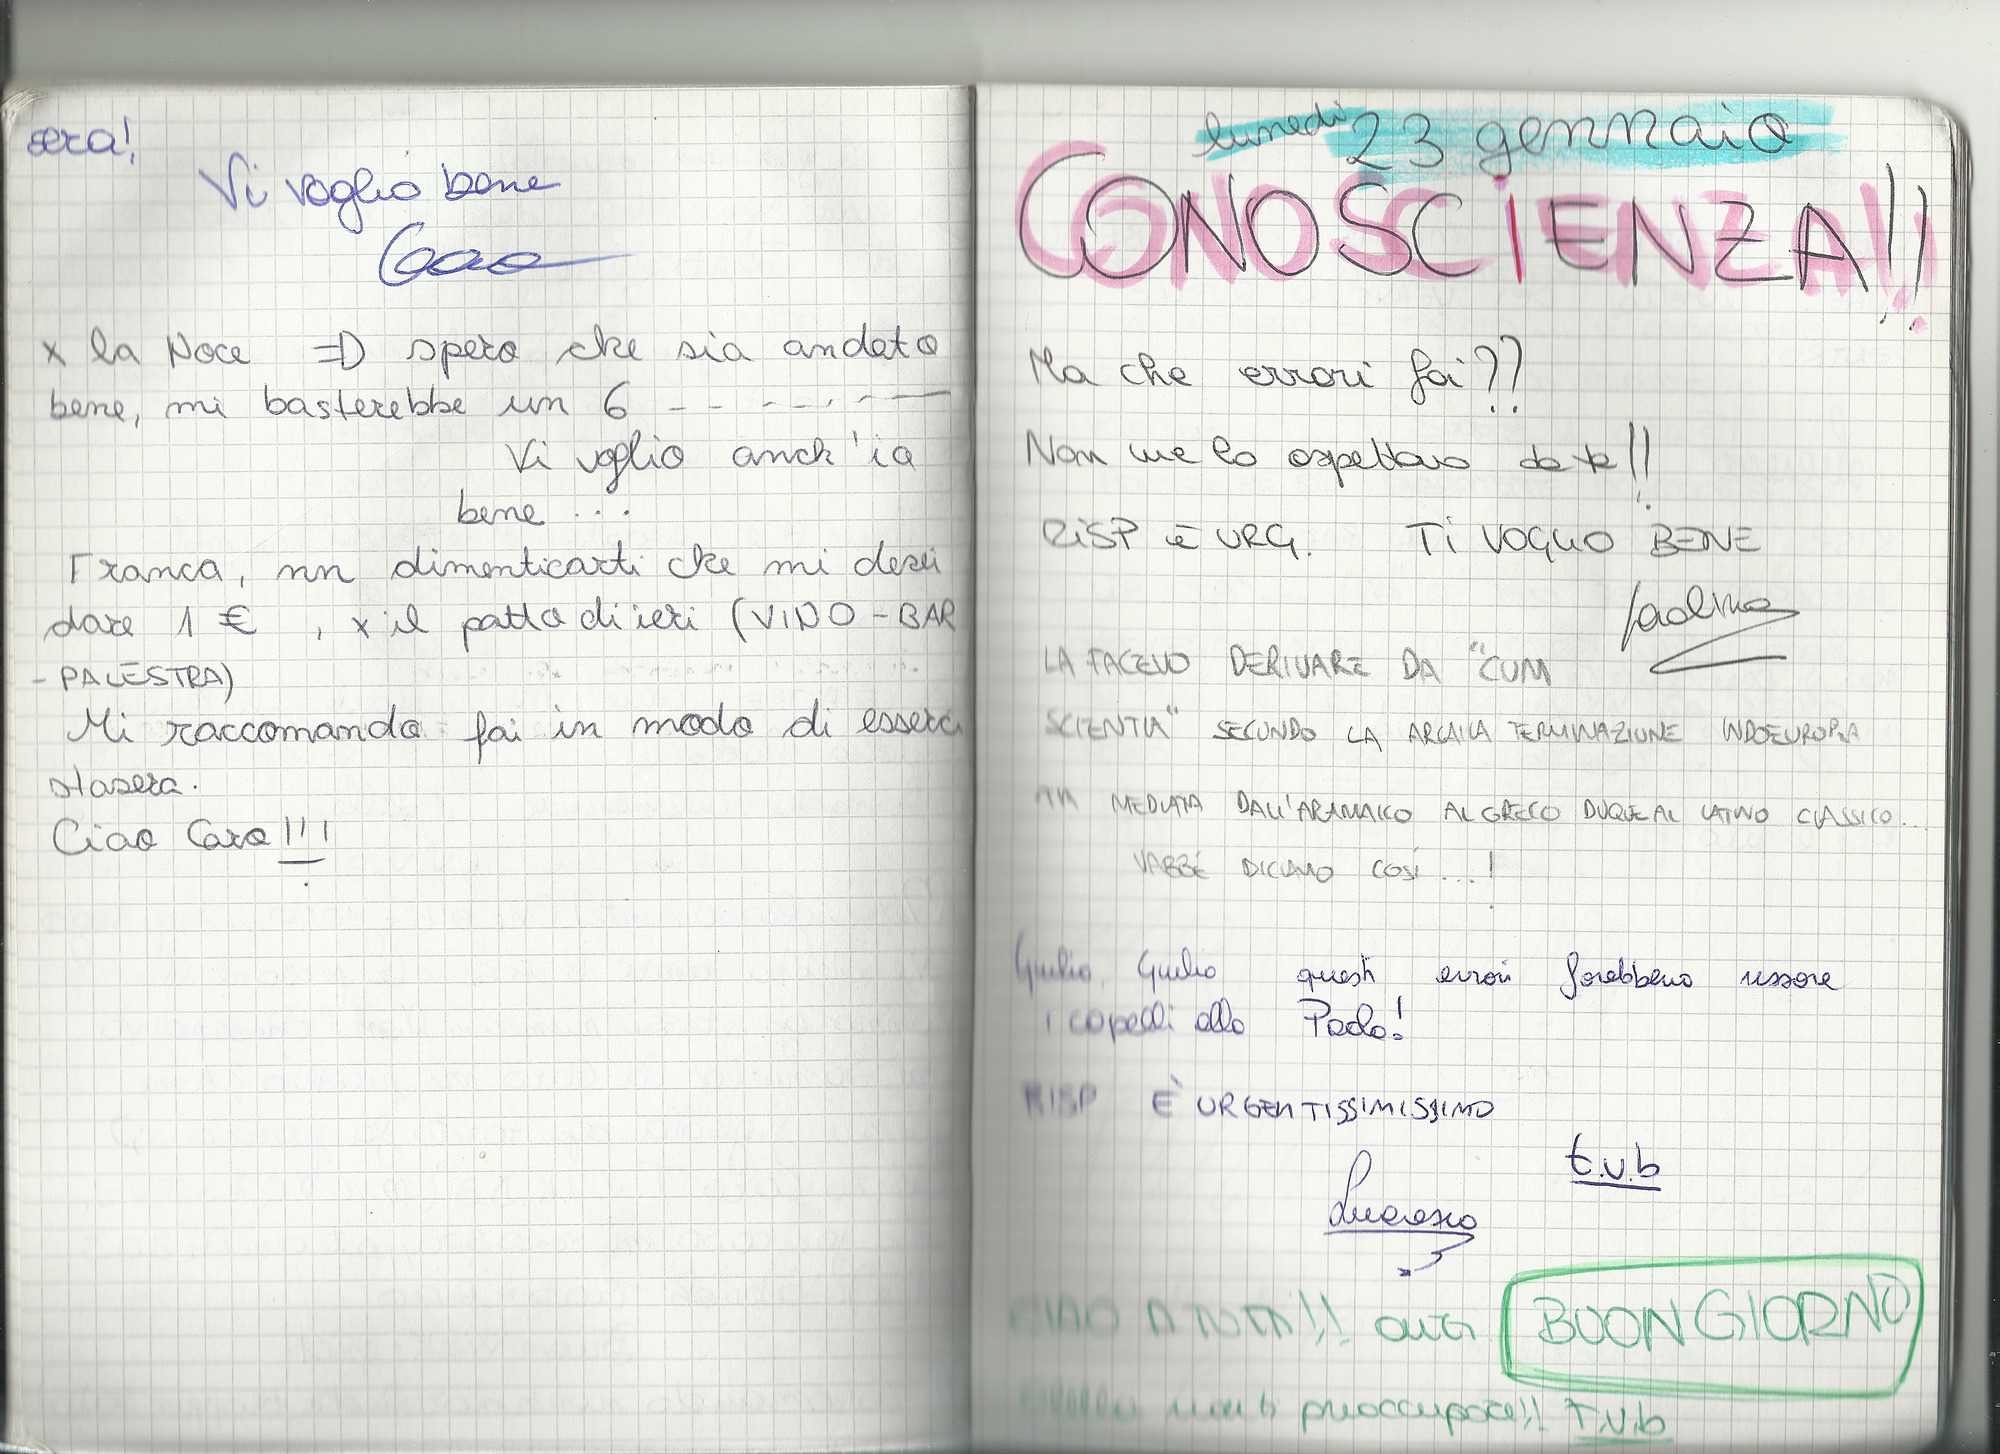 sera!
Vi voglio bene
x la Noce =D spero che sia andato
bene, mi basterebbe un 6 - - - - - -
Vi voglio anch'io
bene ...
Franca, nn dimenticarti che mi devi
dare 1 €, x il patto di ieri (VINO - BAR
- PALESTRA)
Mi raccomando fai in modo di esserci
stasera.
Ciao Caro!!!
lunedì 23 gennaio
CONOSCIENZA!!
Ma che errori fai??
Non me lo aspettavo da te!!
RISP è URG. Ti VOGLIO BENE
Paolina
LA FACEVO DERIVARE DA "CUM
SCIENTIA" SECONDO LA ARCAICA TERMINAZIONE INDOEUROPEA
MEDIATA DALL'ARAMAICO AL GRECO DUNQUE AL LATINO CLASSICO...
VABBÉ DICIAMO COSÌ ...!
Giulio, Giulio questi errori farebbero rizzare
i capelli alla Paola!
RISP È URGENTISSIMISSIMO
t.v.b
CIAO A TUTTI!! OGGI BUON GIORNO
non ti preoccupare!! T.V.b